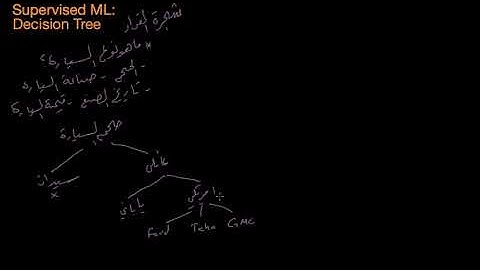 Supervised ML:
Decision Tree
شجرة القرار
* ما هو نوع السيارة؟
- الحجم - صيانة السيارة
- تاريخ الصنع - قيمة السيارة
حجم السيارة
سيدان عائلي
x
ياباني امريكي
Ford Taho GMC